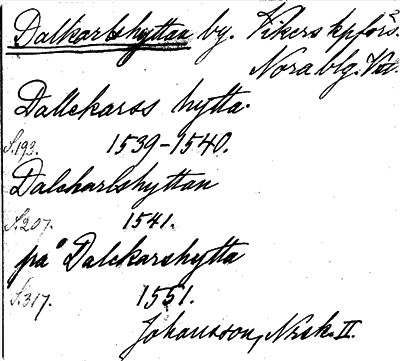 Dalkarlshyttan by. Vikers kpförs.
Nora blg. Vstm.
Dallekarss hytta.
S.193. 1539-1540.
Dalekarlshyttan
S.207. 1541.
på Dalekarshytta
S.317. 1551.
Johansson, Nrsk. II.